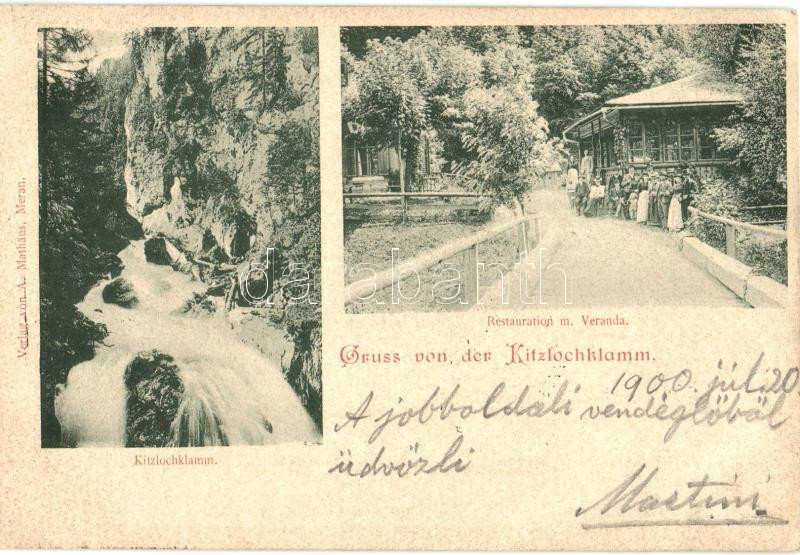 Verlag von A. Mathäus, Meran.
Kitzlochklamm.
Restauration m. Veranda.
Gruss von der Kitzlochklamm.
1900. júl. 20
A jobboldali vendéglőből
üdvözli
Mastini
darabanth